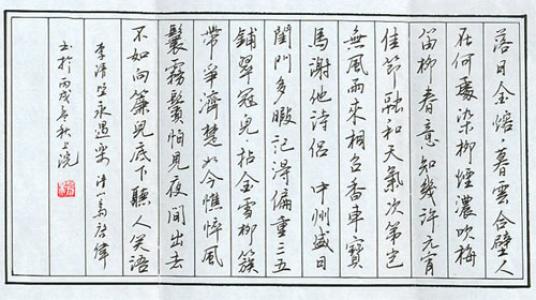 落日金熔暮雲合璧人
在何處染柳煙濃吹梅
笛柳春意知幾許元宵
佳節融和天氣次第豈
無風雨來相召香車寶
馬謝他詩侶 中州盛日
閨門多暇記得偏重三五
鋪翠冠兒拈金雪柳簇
帶爭濟楚如今憔悴風
鬟霧鬢怕見夜間出去
不如向簾兒底下聽人笑語
李清照永遇樂
書於丙戌年秋上浣